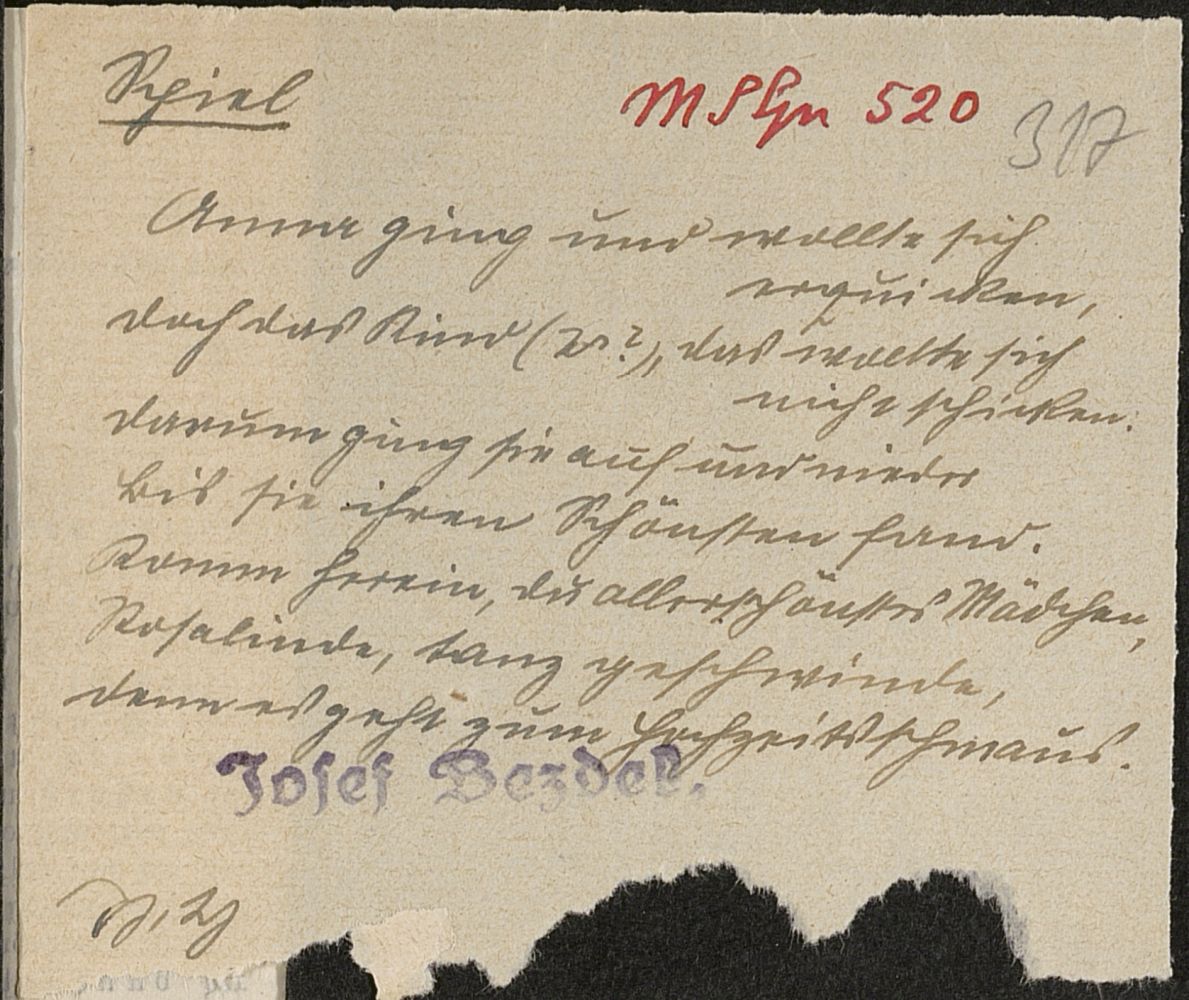 Spiel
MSGn 520
317
Anna ging und wollte sich
erquicken,
doch das Kind (er?), das wollte sich
nicht schicken:
darum ging sie auf und nieder
bis sie ihren Schönsten fand.
Komm herein, du allerschönstes Mädchen,
Rosalinde, tanz geschwinde,
denn es geht zum Hochzeitsschmaus.
Josef Bezdek.